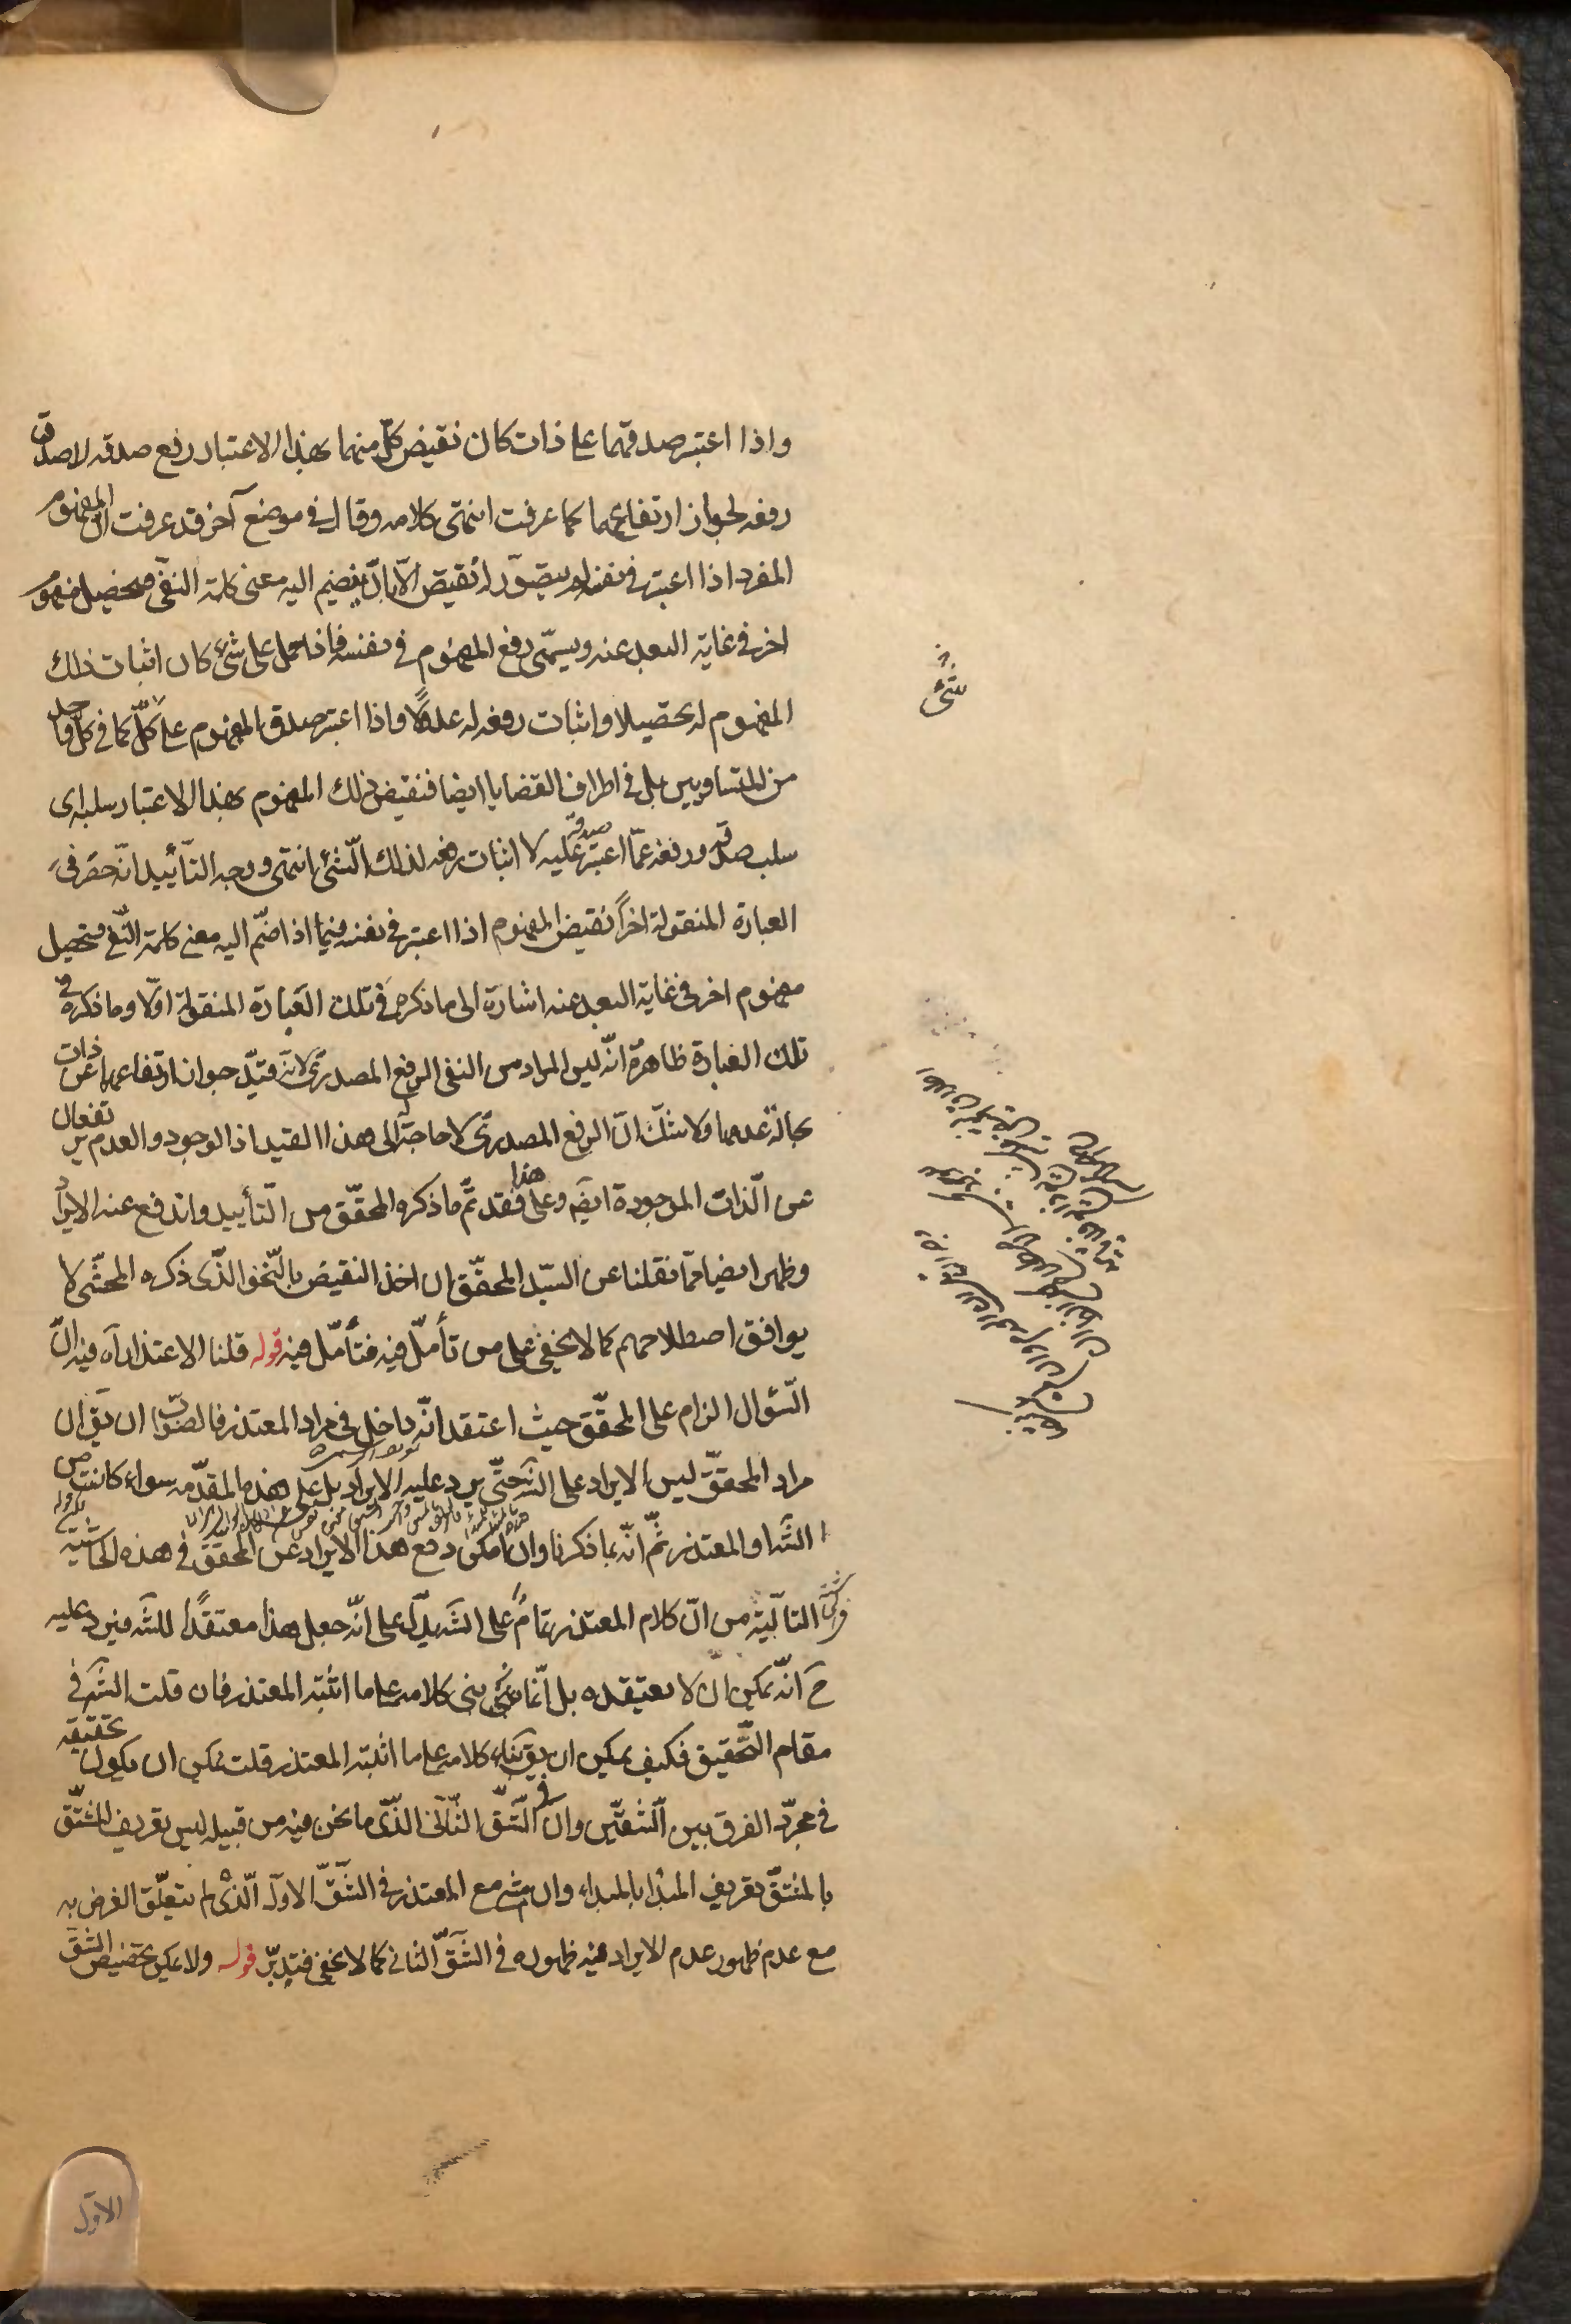 واذا اعتبر صدقهما على ذات كان نقيض كلّ منهما بهذا الاعتبار رفع صدقه لا صدق
رفعه لجواز ارتفاعهما كما عرفت انتهى كلامه وقال فى موضع آخر قد عرفت انّ المفهوم
المفرد اذا اعتبر فى نفسه لم يتصوّر له نقيض الّا بان ينضم اليه معنى كلمة النفى فيحصل مفهوم
اخر فى غاية البعد عنه ويسمّى رفع المفهوم فى نفسه فاذا حمل على شئ كان اثبات ذلك
المفهوم له تحصيلا واثبات رفعه له عدولًا واذا اعتبر صدق المفهوم على كلّ كما فى كل واحد
من المتساويين بل فى اطراف القضايا ايضا فنقيض ذلك المفهوم بهذا الاعتبار سلبه اى
سلب صدقه ورفعه عمّا اعتبر صدقه عليه لا اثبات رفعه لذلك الشّئ انتهى ووجه التّأييد انّه حصر فى
العبارة المنقولة اخراً نقيض المفهوم اذا اعتبر فى نفسه فيما اذا ضمّ اليه معنى كلمة النّفى فيحصل
مفهوم اخر فى غاية البعد عنه اشارة الى ما ذكره فى تلك العبارة المنقولة اوّلا وما ذكره فى
تلك العبارة ظاهرة انّه ليس المراد من النفى الرفع المصدرىّ لانّه قيّد جواز ارتفاعهما عن ذات
بحالة عدمها ولا شكّ انّ الرفع المصدرىّ لا حاجة الى هذا القيد اذ الوجود والعدم يرتفعان
عن الّذات الموجودة ايضه وعلى هذا فقد تمّ ما ذكره المحقّق من التّأييد واندفع عنه الايراد
وظهر ايضا ممّا نقلنا عن السيّد المحقّق ان اخذ النقيض بالنّحو الذّى ذكره المحشّى لا
يوافق اصطلاحهم كما لا يخفى على من تأمّل فيه فتأمّل فيه قوله قلنا الاعتذار آه فيه انّ
السّؤال الزام على المحقّق حيث اعتقد انّه داخل فى مراد المعتذر فالصّواب ان يقَ ان
مراد المحقّق ليس الايراد على الشَه حتّى يرد عليه الايراد بل على هذه المقدّمه سواء كانت من
الشَه او المعتذر ثمّ انّه بما ذكرنا وان امكن دفع هذا الايراد عن المحقّق فى هذه الحاشية
التاليّة من انّ كلام المعتذر تمامٌ على الشَه بناءً على انّه جعل هذا معتقدًا للشَه فيرد عليه
حَ انّه يمكن ان لا يعتقده بل انّما بنى كلامه على ما اثبته المعتذر فان قلت الشَه فى
مقام التّحقيق فكيف يمكن ان يقَ بناء كلامه على ما اثبته المعتذر قلت يمكن ان يكون تحقيقه
فى مجرّد الفرق بين الشّقّين وان فى الشّقّ الثّانى الذّى ما نحن فيه من قبيله ليس تعريف المشتّق
بالمشتقّ تعريف المبدإ بالمبداء وان مشى مع المعتذر فى الشّقّ الاوّل الّذى لم يتعلّق الغرض به
مع عدم ظهور عدم الايراد فيه ظهوره فى الشّقّ الثانى كما لا يخفى فتدبّر قوله ولا يمكن تخصيص الشقّ
شئ
الاوّل